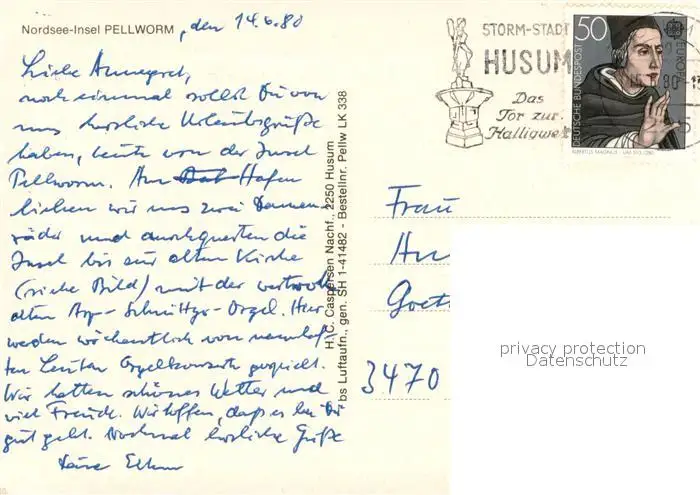 Nordsee-Insel PELLWORM, den 14.6.80
Liebe Annegret,
noch einmal sollst Du von
uns herzliche Urlaubsgrüße
haben, heute von der Insel
Pellworm. Am Hafen
liehen wir uns zwei Damen-
räder und durchquerten die
Insel bis zur alten Kirche
(siehe Bild) mit der wertvollen
alten Arp-Schnittger-Orgel. Hier
werden wöchentlich von namhaf-
ten Leuten Orgelkonzerte gespielt.
Wir hatten schönes Wetter und
viel Freude. Wir hoffen, daß es bei Dir
gut geht. Nochmal herzliche Grüße
Deine Eltern
H. C. Caspersen Nachf., 2250 Husum
bs Luftaufn., gen. SH 1-41482 - Bestellnr. Pellw LK 338
STORM-STADT
HUSUM
Das
Tor zur
Halligwelt
50
DEUTSCHE BUNDESPOST
EUROPA
ALBERTUS MAGNUS
Frau
An
Goet
3470
privacy protection
Datenschutz